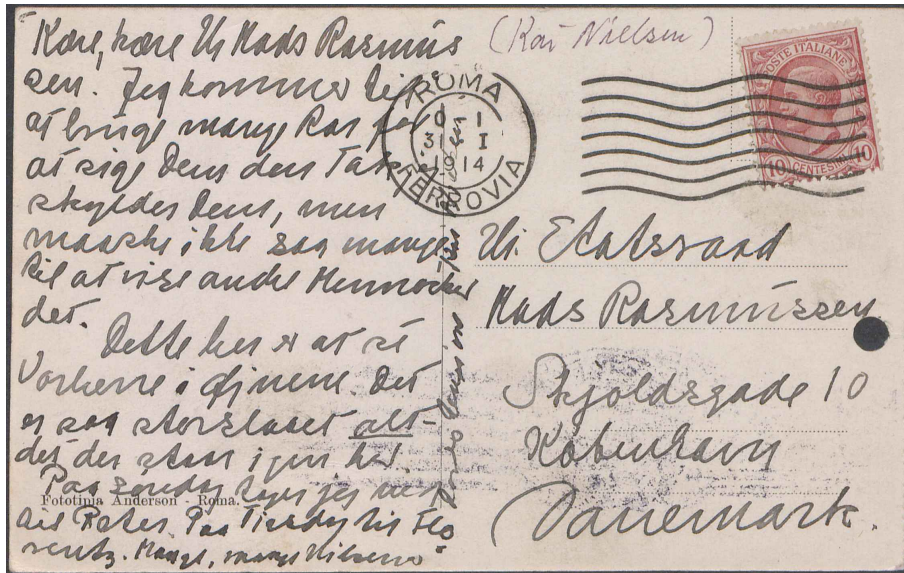 Kære, kære Hr Mads Rasmus
sen. Jeg kommer til
at bruge mange Aar for
at sige Dem den Tak jeg
skylder Dem, men
maaske ikke saa mange
til at vise andre Mennesker
det.
Dette her er at se
Vorherre i Øjnene. Det
er saa storslaaet alt-
det der staar igen her.
Paa Søndag rejser jeg med
Paa Tirsdag til Flo-
rentz. Mange, mange Hilsener
Deres
(Kai Nielsen)
ROMA
FERROVIA
31 I
1914
POSTE ITALIANE
10 CENTESIMI 10
Hr. Etatsraad
Mads Rasmussen
Skjoldsgade 10
København
Danemark.
Fototipia Anderson - Roma.